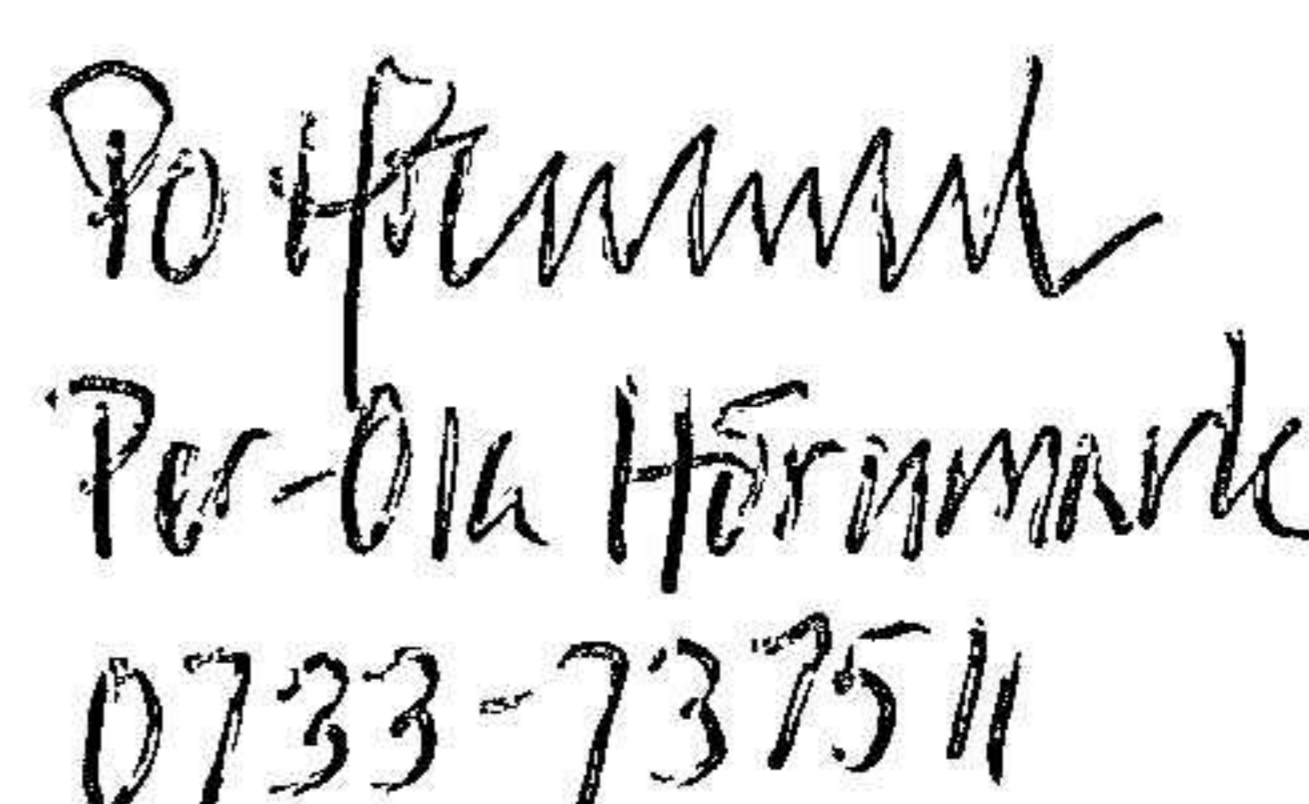 Po Hörnmark
Per-Ola Hörnmark
0733-737511